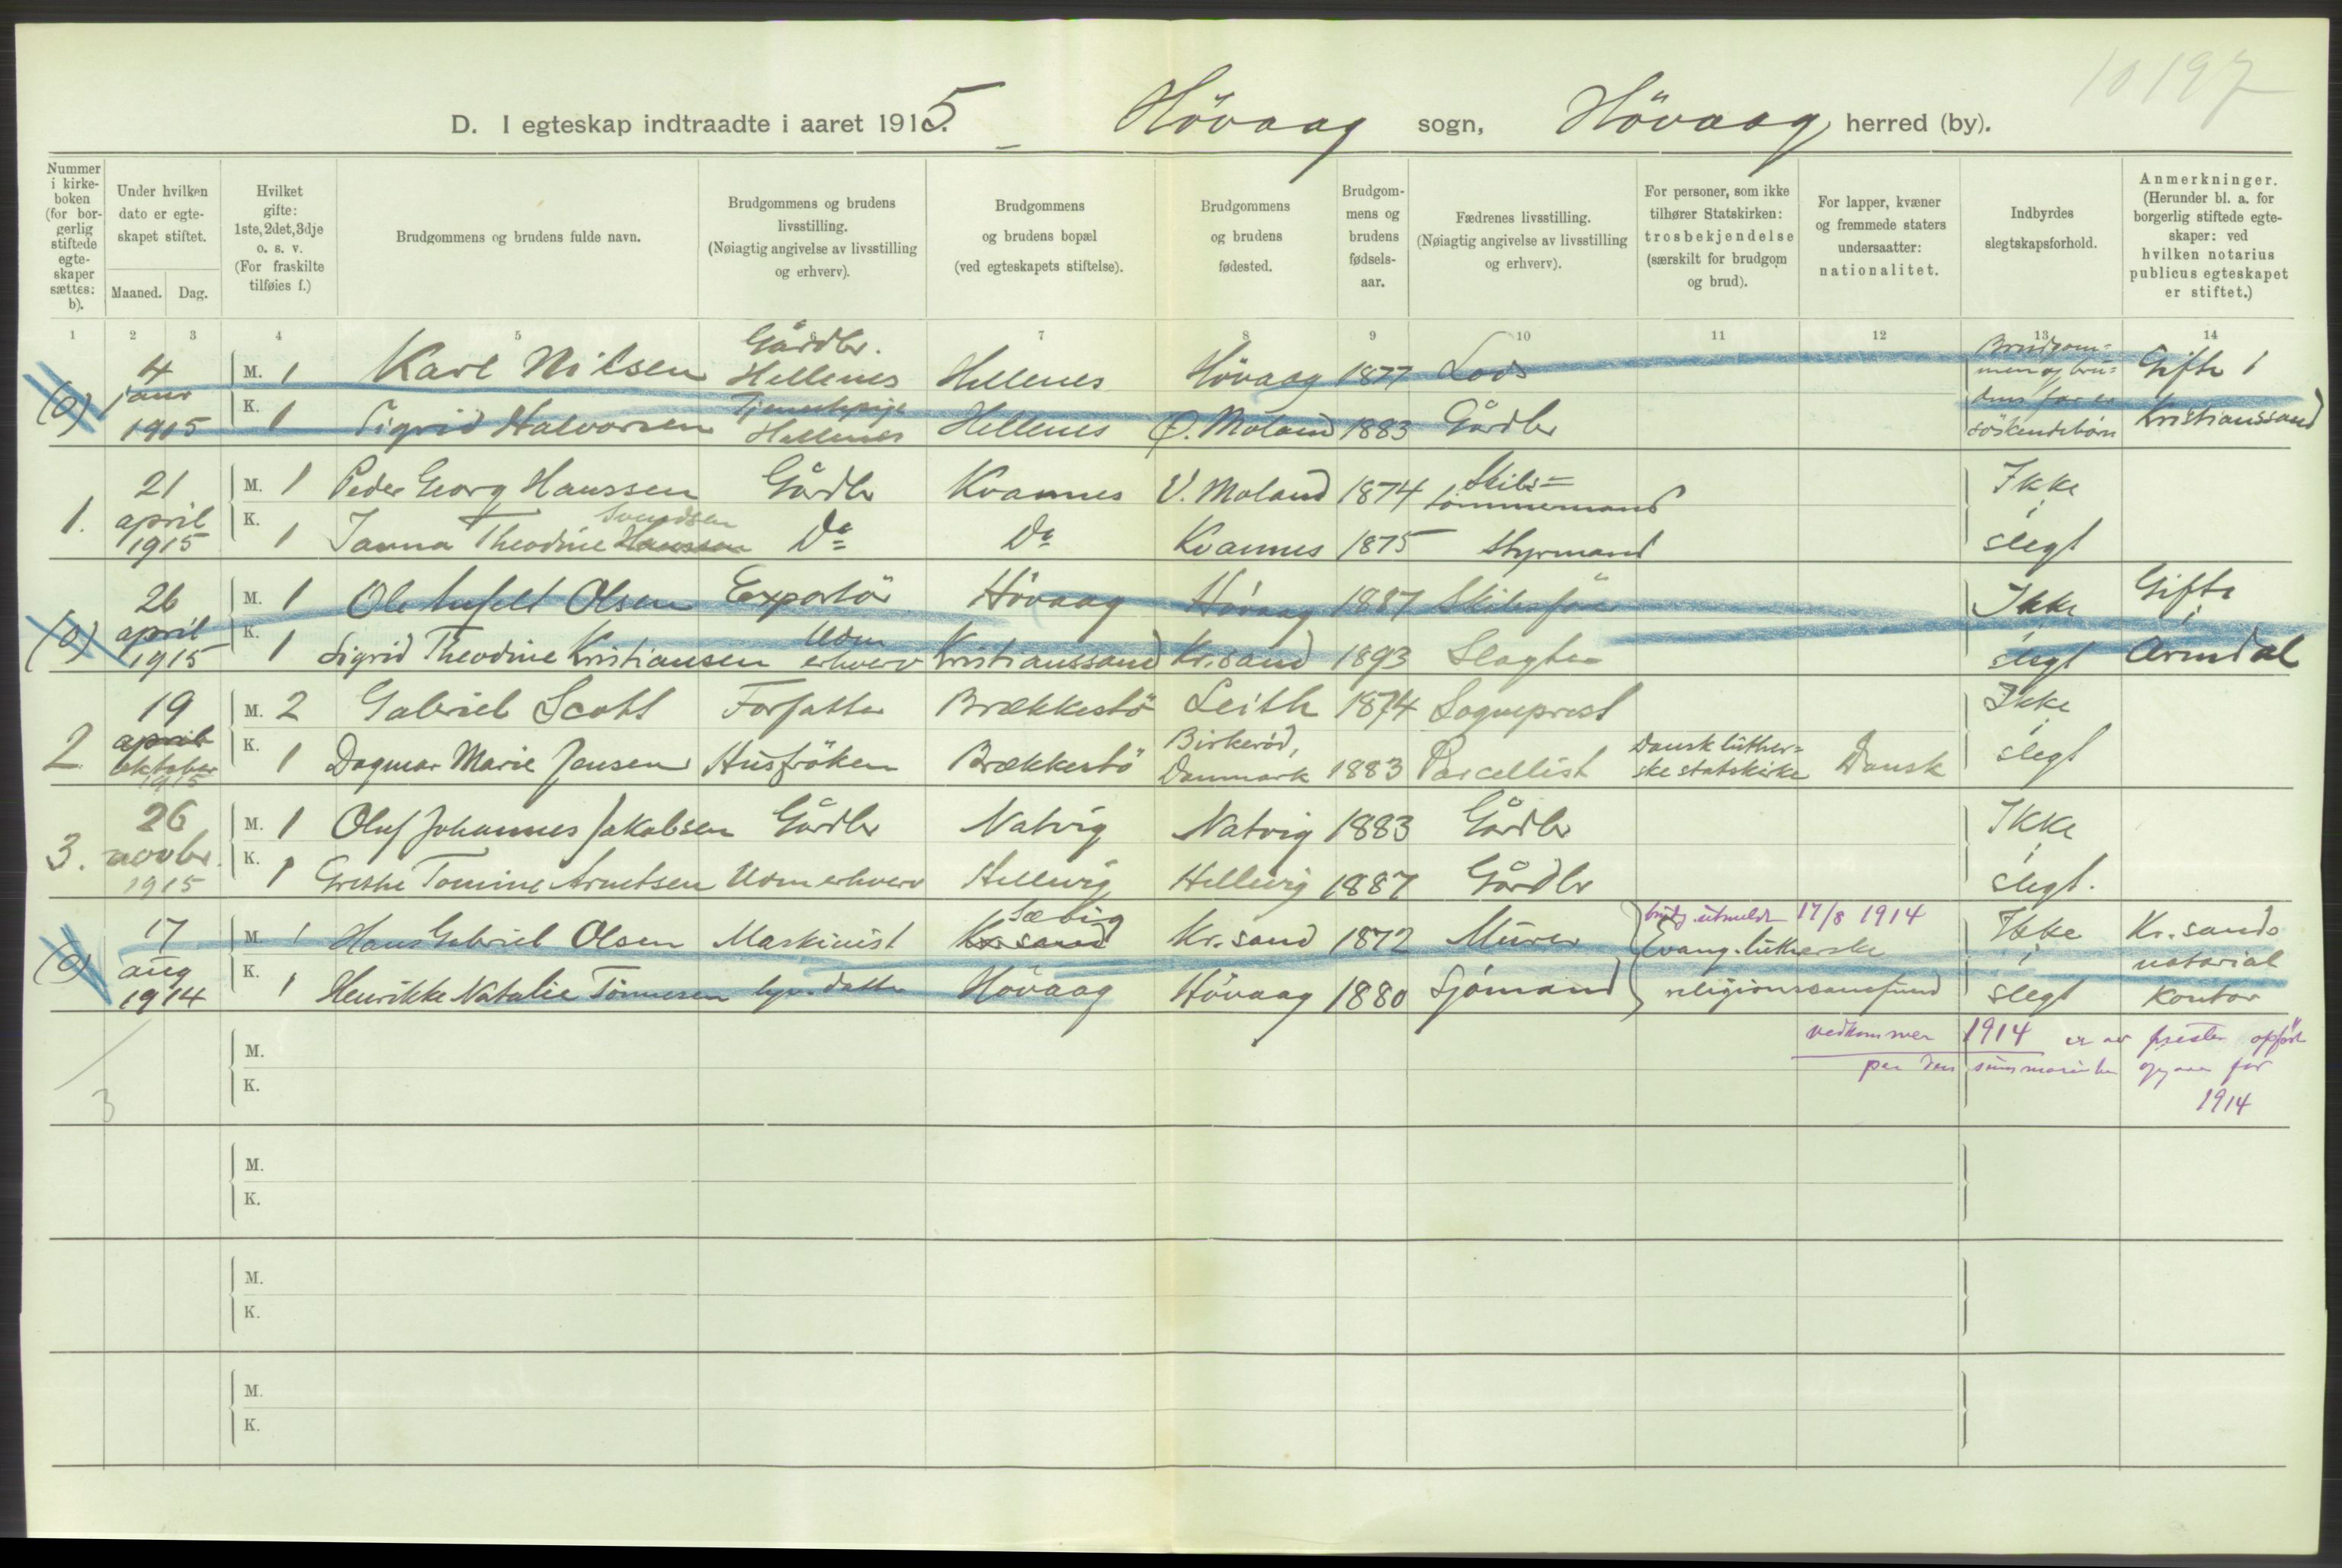 10197
D. I egteskap indtraadte i aaret 1915. Hövaag sogn, Hövaag herred (by).
Nummer i kirke-boken (for bor-gerlig stiftede egte-skaper sættes: b).
Under hvilken dato er egte-skapet stiftet.
Maaned. Dag.
Hvilket gifte: 1ste, 2det, 3dje o. s. v. (For fraskilte tilføies f.)
Brudgommens og brudens fulde navn.
Brudgommens og brudens livsstilling. (Nøiagtig angivelse av livsstilling og erhverv).
Brudgommens og brudens bopæl (ved egteskapets stiftelse).
Brudgommens og brudens fødested.
Brudgom-mens og brudens fødsels-aar.
Fædrenes livsstilling. (Nøiagtig angivelse av livsstilling og erhverv).
For personer, som ikke tilhører Statskirken: trosbekjendelse (særskilt for brudgom og brud).
For lapper, kvæner og fremmede staters undersaatter: nationalitet.
Indbyrdes slegtskapsforhold.
Anmerkninger. (Herunder bl. a. for borgerlig stiftede egte-skaper: ved hvilken notarius publicus egteskapet er stiftet.)
1 2 3 4 5 6 7 8 9 10 11 12 13 14
(0) 4 januar 1915
M. 1 Karl Nilsen Gårdbr. Hellenes Hellenes Hövaag 1877 Lods Brudgom-men og bru-
K. 1 Sigrid Halvorsen Tjenestepige Hellenes Hellenes Ö. Moland 1883 Gårdbr dens far er söskendebörn
Gifte i Kristianssand
1. 21 april 1915
M. 1 Peder Georg Hanssen Gårdbr Kvannes V. Moland 1874 Skibs= tömmermand Ikke
K. 1 Janna Theodine Hanssen Svendsen Do Do Kvannes 1875 Styrmand i slegt
(0) 26 april 1915
M. 1 Ole Olsen Exportör Hövaag Hövaag 1887 Skibsför Ikke Gifte
K. 1 Sigrid Theodine Kristiansen Uden erhverv Kristianssand Kr.sand 1893 Slagter i slegt i Arendal
2 19 april oktober 1915
M. 2 Gabriel Scott Forfatter Brækkestö Leith 1874 Sogneprest Ikke
K. 1 Dagmar Marie Jensen Husfröken Brækkestö Birkeröd, Danmark 1883 Parcellist Dansk luther=ske statskirke Dansk i slegt
3. 26 novbr. 1915
M. 1 Oluf Johannes Jakobsen Gårdbr Natvig Natvig 1883 Gårdbr Ikke
K. 1 Grethe Tomine Arnetsen Uden erhverv Hellevig Hellevig 1887 Gårdbr i slegt.
(0) 17 aug 1914
M. 1 Hans Gabriel Olsen Maskinist Kr.sand Sævig Kr.sand 1872 Murer utmeldt 17/8 1914 Evang. lutherske Ikke Kr.sands
K. 1 Henrikke Natalie Tönnesen Hövaag Hövaag 1880 Sjömand religionssamfund i slegt notarial kontor
M.
K.
3
vedkommer 1914 er av presten opfört
paa den summariske opgave for
1914
M.
K.
M.
K.
M.
K.